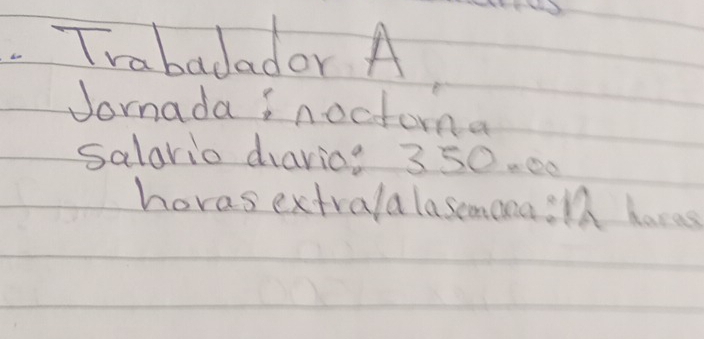 Trabajador A
Jornada: nocturna
Salario diario: 350.00
horas extra/a la semana: 12 horas